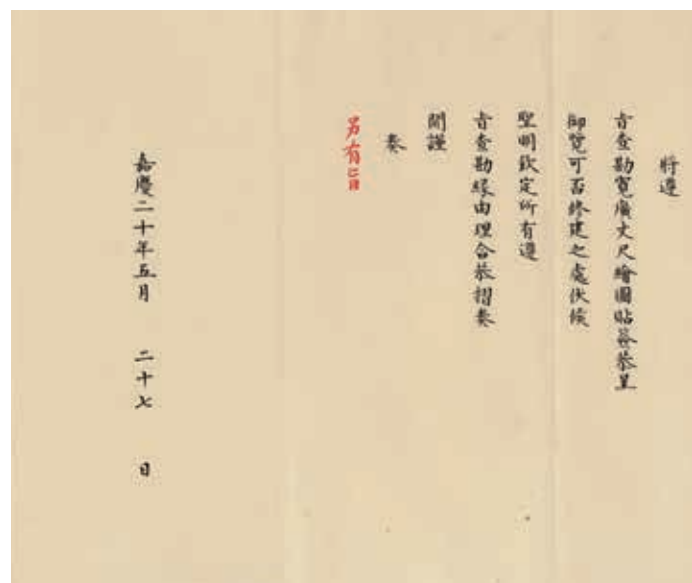 將遵
旨查勘寬廣丈尺繪圖貼簽恭呈
御覽可否修建之處伏候
聖明欽定所有遵
旨查勘緣由理合恭摺奏
聞謹
奏
另有旨
嘉慶二十年五月 二十七 日